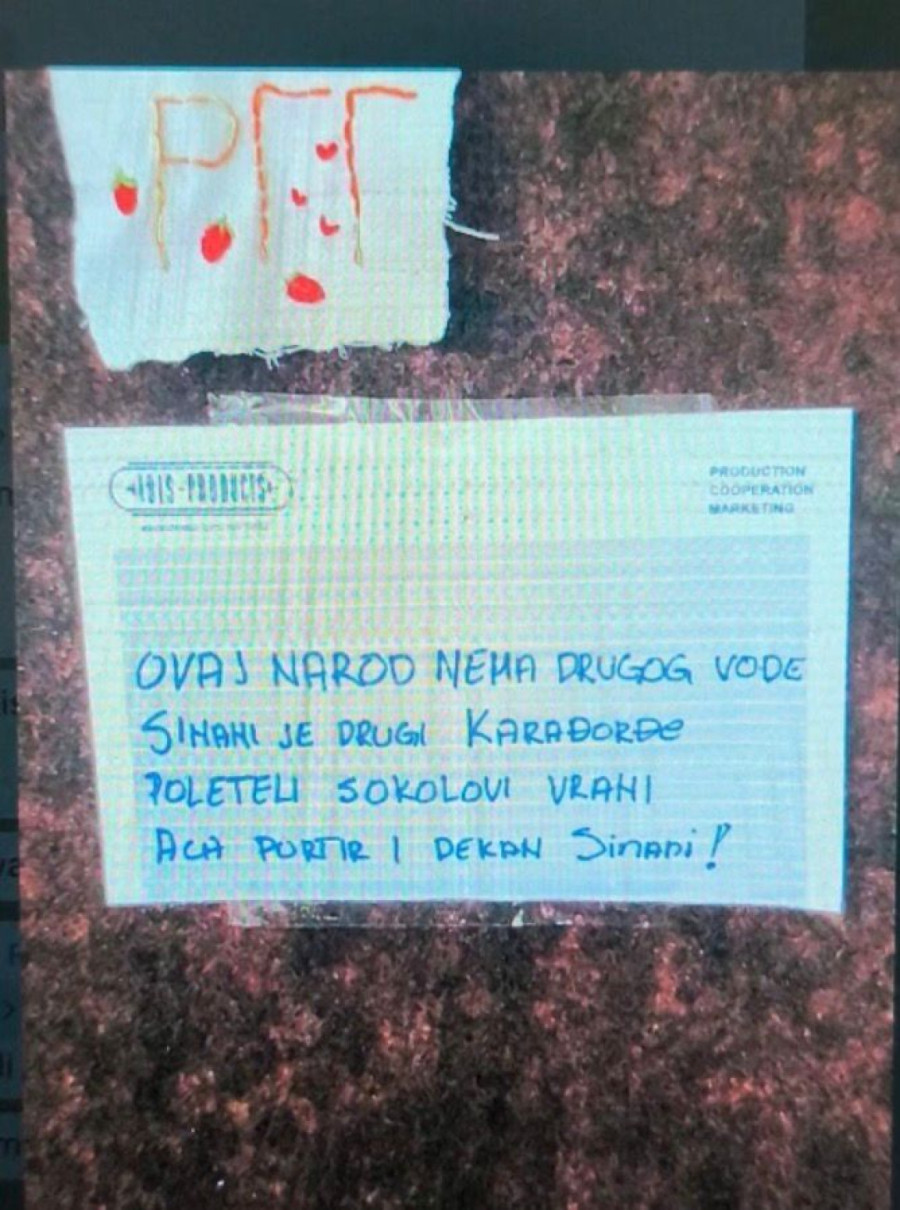 РГГ
PRODUCTION
COOPERATION
MARKETING
OVAJ NAROD NEMA DRUGOG VOĐE
SINANI JE DRUGI KARAĐORĐE
POLETELI SOKOLOVI VRANI
ACA PORTIR I DEKAN Sinani!